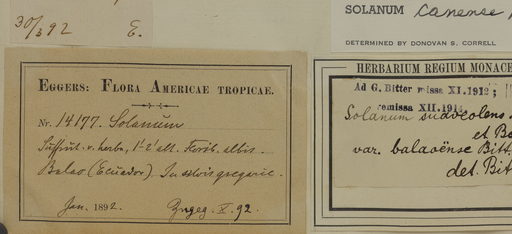 30/3 92 E.
SOLANUM canense
DETERMINED BY DONOVAN S. CORRELL
EGGERS: FLORA AMERICAE TROPICAE.
Nr. 14177. Solanum
Suffrut. v. herba, 1-2' alt. Corol. albis.
Balao (Ecuador). In silvis gregarie.
Jan. 1892. V. 92.
HERBARIUM REGIUM MONACE
Ad G. Bitter missa XI. 1912;
remissa XII. 191
Solanum suaveolens
et B
var. balaoënse Bitt
det. Bit